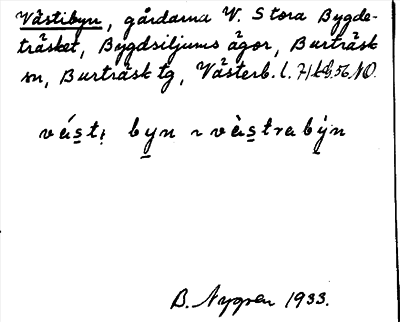 Västibyn, gårdarna V. Stora Bygde-
träsket, Bygdsiljums ägor, Burträsk
sn, Burträsk tg, Västerb. l.
väst; byn ~ västrabyn
B. Nygren 1933.